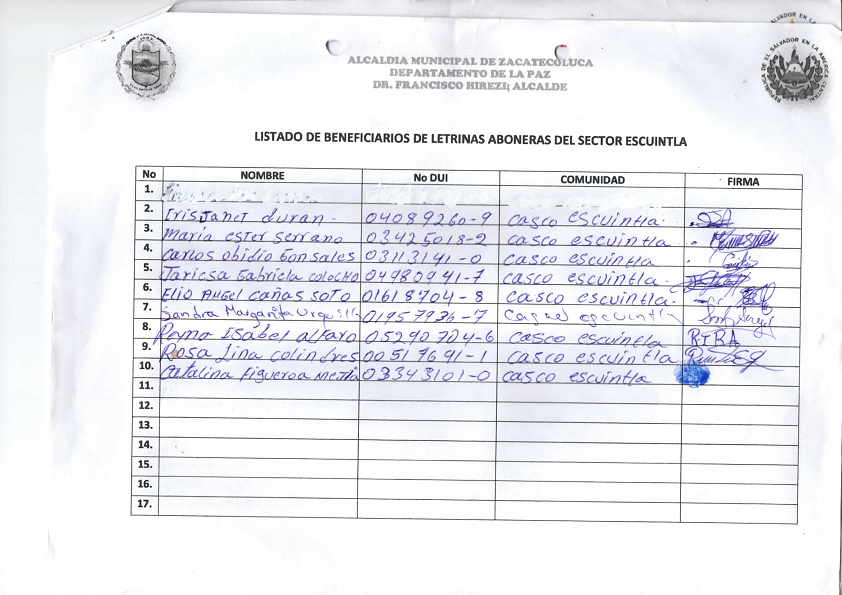 ALCALDIA MUNICIPAL DE ZACATECOLUCA
DEPARTAMENTO DE LA PAZ
DR. FRANCISCO HIREZI; ALCALDE
LISTADO DE BENEFICIARIOS DE LETRINAS ABONERAS DEL SECTOR ESCUINTLA
No NOMBRE No DUI COMUNIDAD FIRMA
1.
2. Iris Janet duran. 04089260-9 casco escuintla.
3. maria ester serrano 03425018-2 casco escuintla
4. carlos obidio Gonsales 03113141-0 casco escuintla
5. Jaricsa Gabriela colocho 04980941-7 casco escuintla.
6. Elio Angel cañas soto 01618704-8 casco escuintla.
7. Sandra Margarita Urquilla 01957936-7
8. Reyno Isabel alfaro 05290704-6 casco escuintla RIRA
9. Rosa Lina colindres 00517691-1 casco escuintla
10. Catalina Figueroa Mejia 03343101-0 casco escuintla
11.
12.
13.
14.
15.
16.
17.